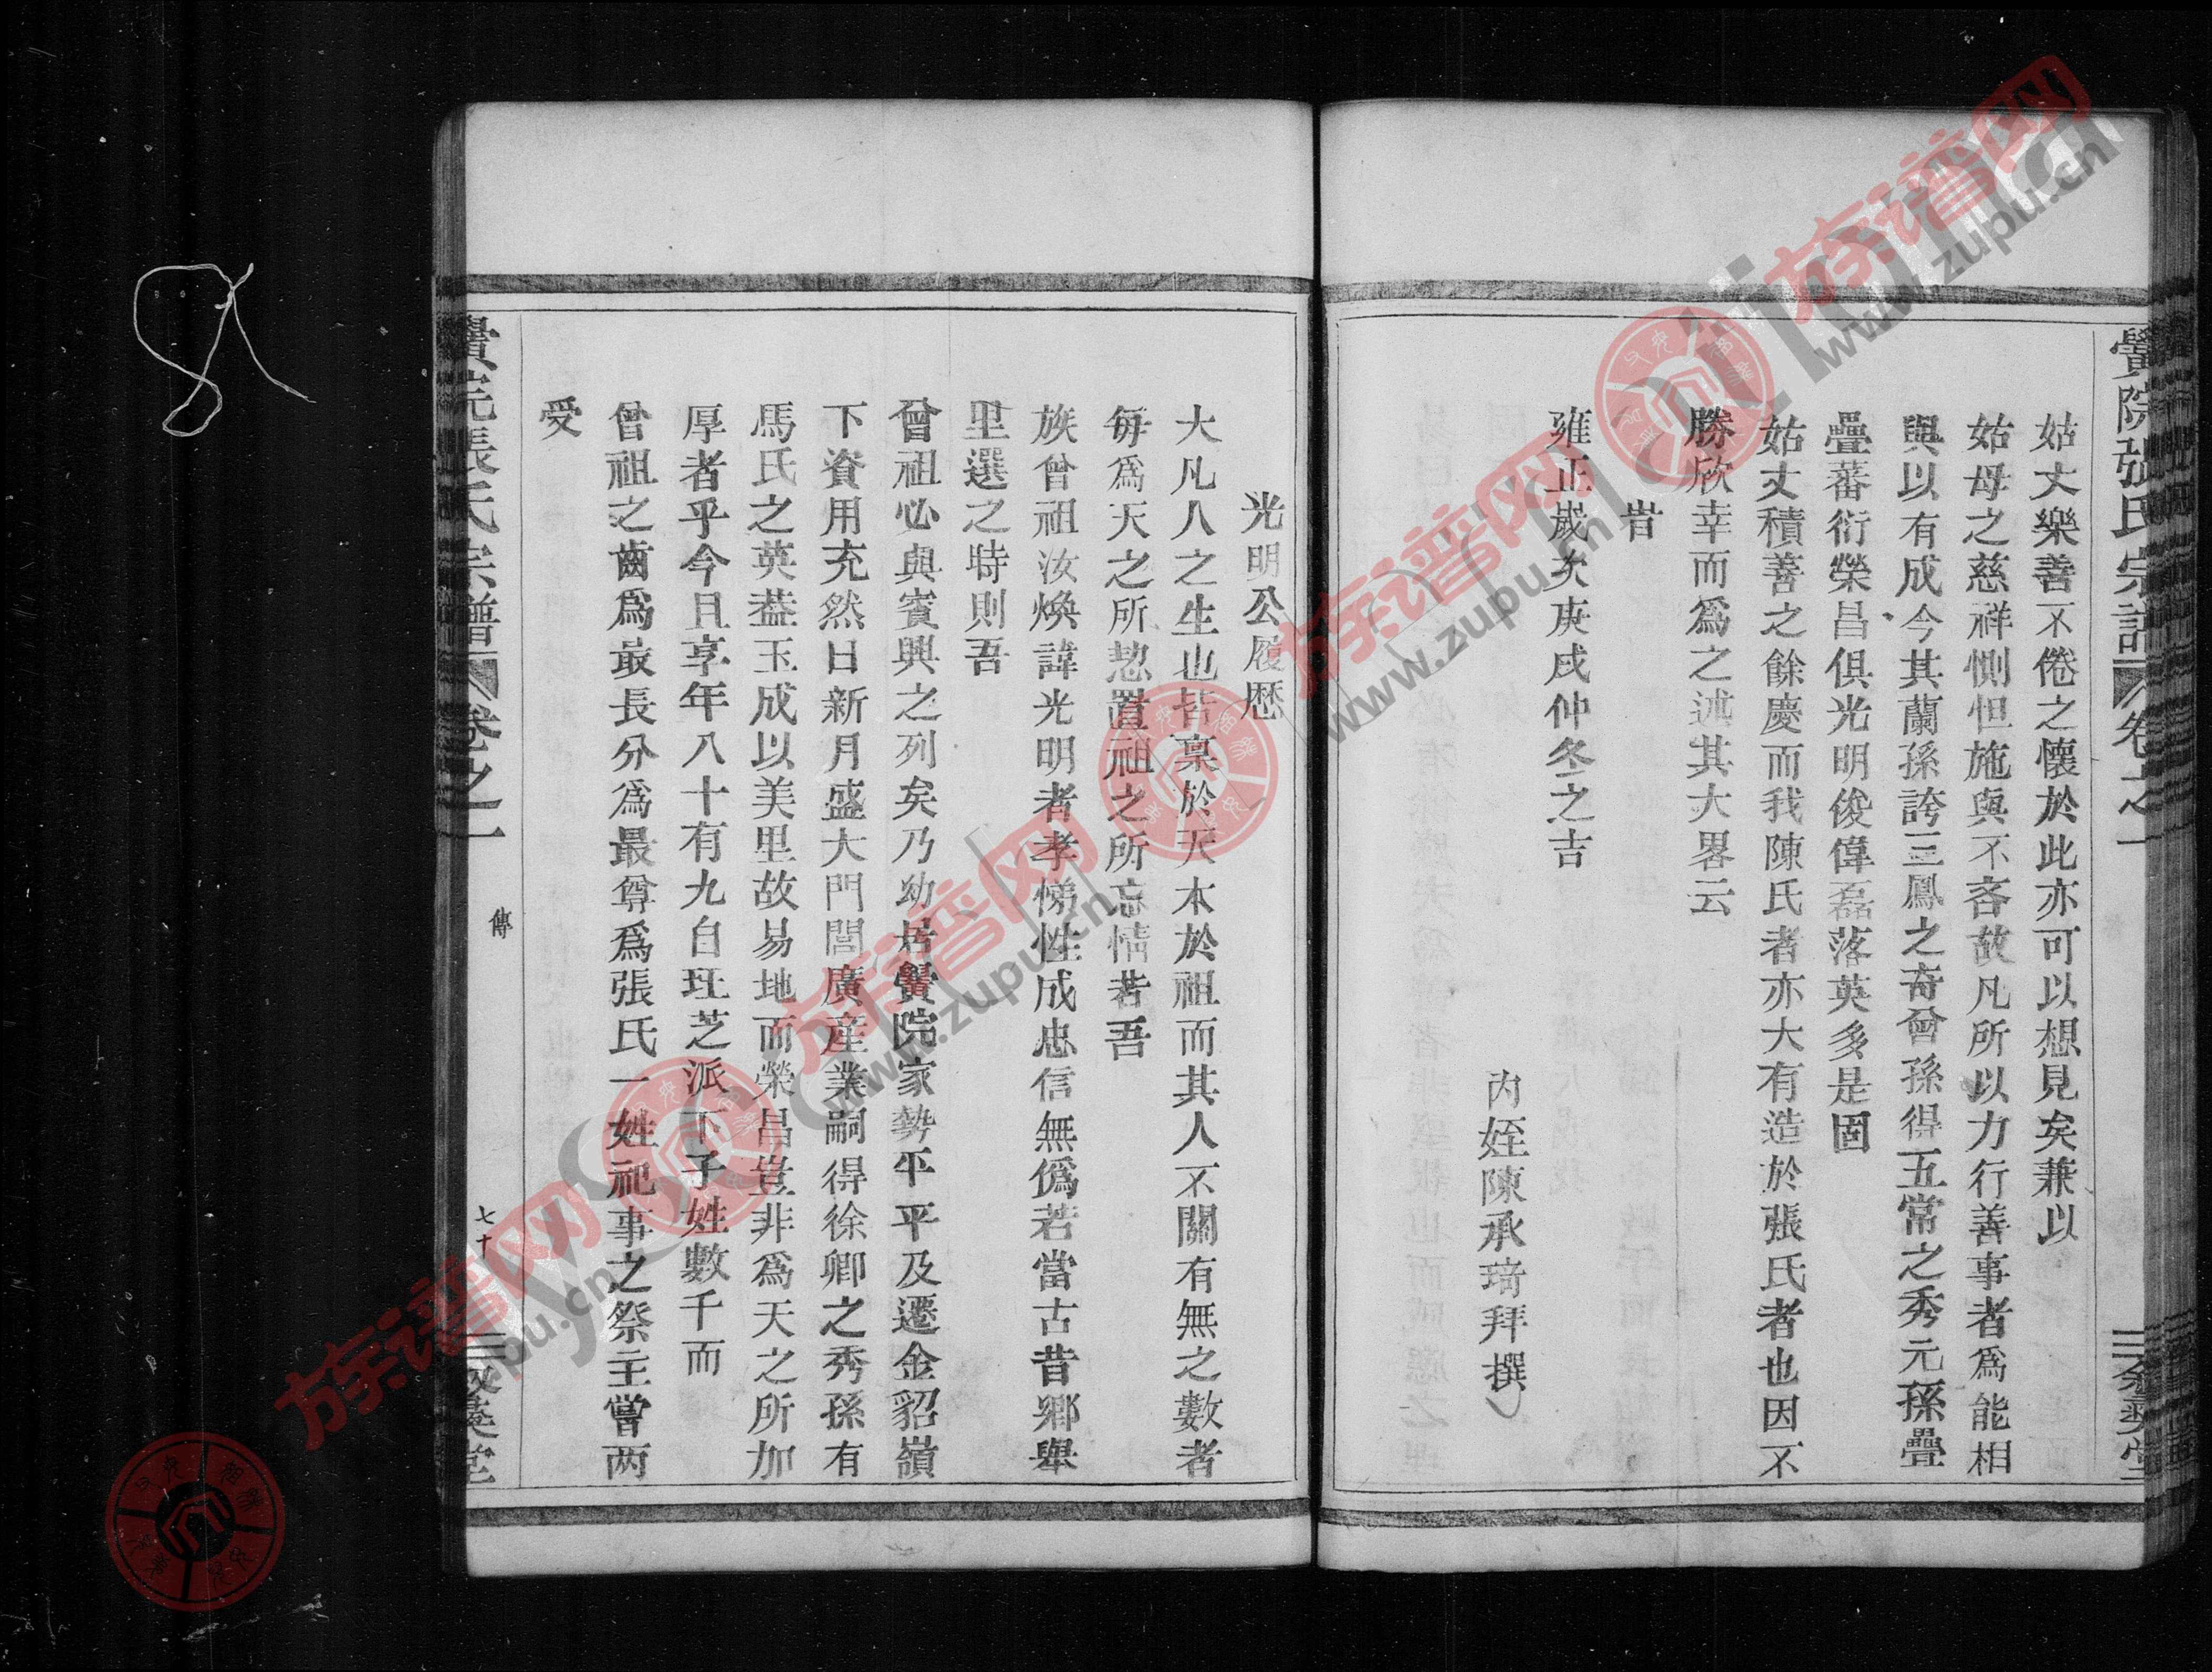 黌院張氏宗譜 卷之一
姑丈樂善不倦之懷於此亦可以想見矣兼以
姑母之慈祥惻怛施與不吝故凡所以力行善事者爲能相
與以有成今其蘭孫誇三鳳之奇曾孫得五常之秀元孫疊
疊蕃衍榮昌俱光明俊偉磊落英多是固
姑丈積善之餘慶而我陳氏者亦大有造於張氏者也因不
勝欣幸而爲之述其大畧云
旹
雍正歲次庚戌仲冬之吉
內姪陳承琦拜撰
光明公履歷
大凡人之生也皆稟於天本於祖而其人不關有無之數者
每爲天之所恝置祖之所忘情若吾
族曾祖汝煥諱光明者孝悌性成忠信無僞若當古昔鄉舉
里選之時則吾
曾祖必與賓興之列矣乃幼居黌院家勢平平及遷金貂嶺
下資用充然日新月盛大門閭廣産業嗣得徐卿之秀孫有
馬氏之英葢玉成以美里故易地而榮昌豈非爲天之所加
厚者乎今且享年八十有九自玨芝派下子姓數千而
曾祖之齒爲最長分爲最尊爲張氏一姓祀事之祭主嘗两
受
黌院張氏宗譜 卷之一
傳
七十
三
堂
www.zupu.cn
族谱网